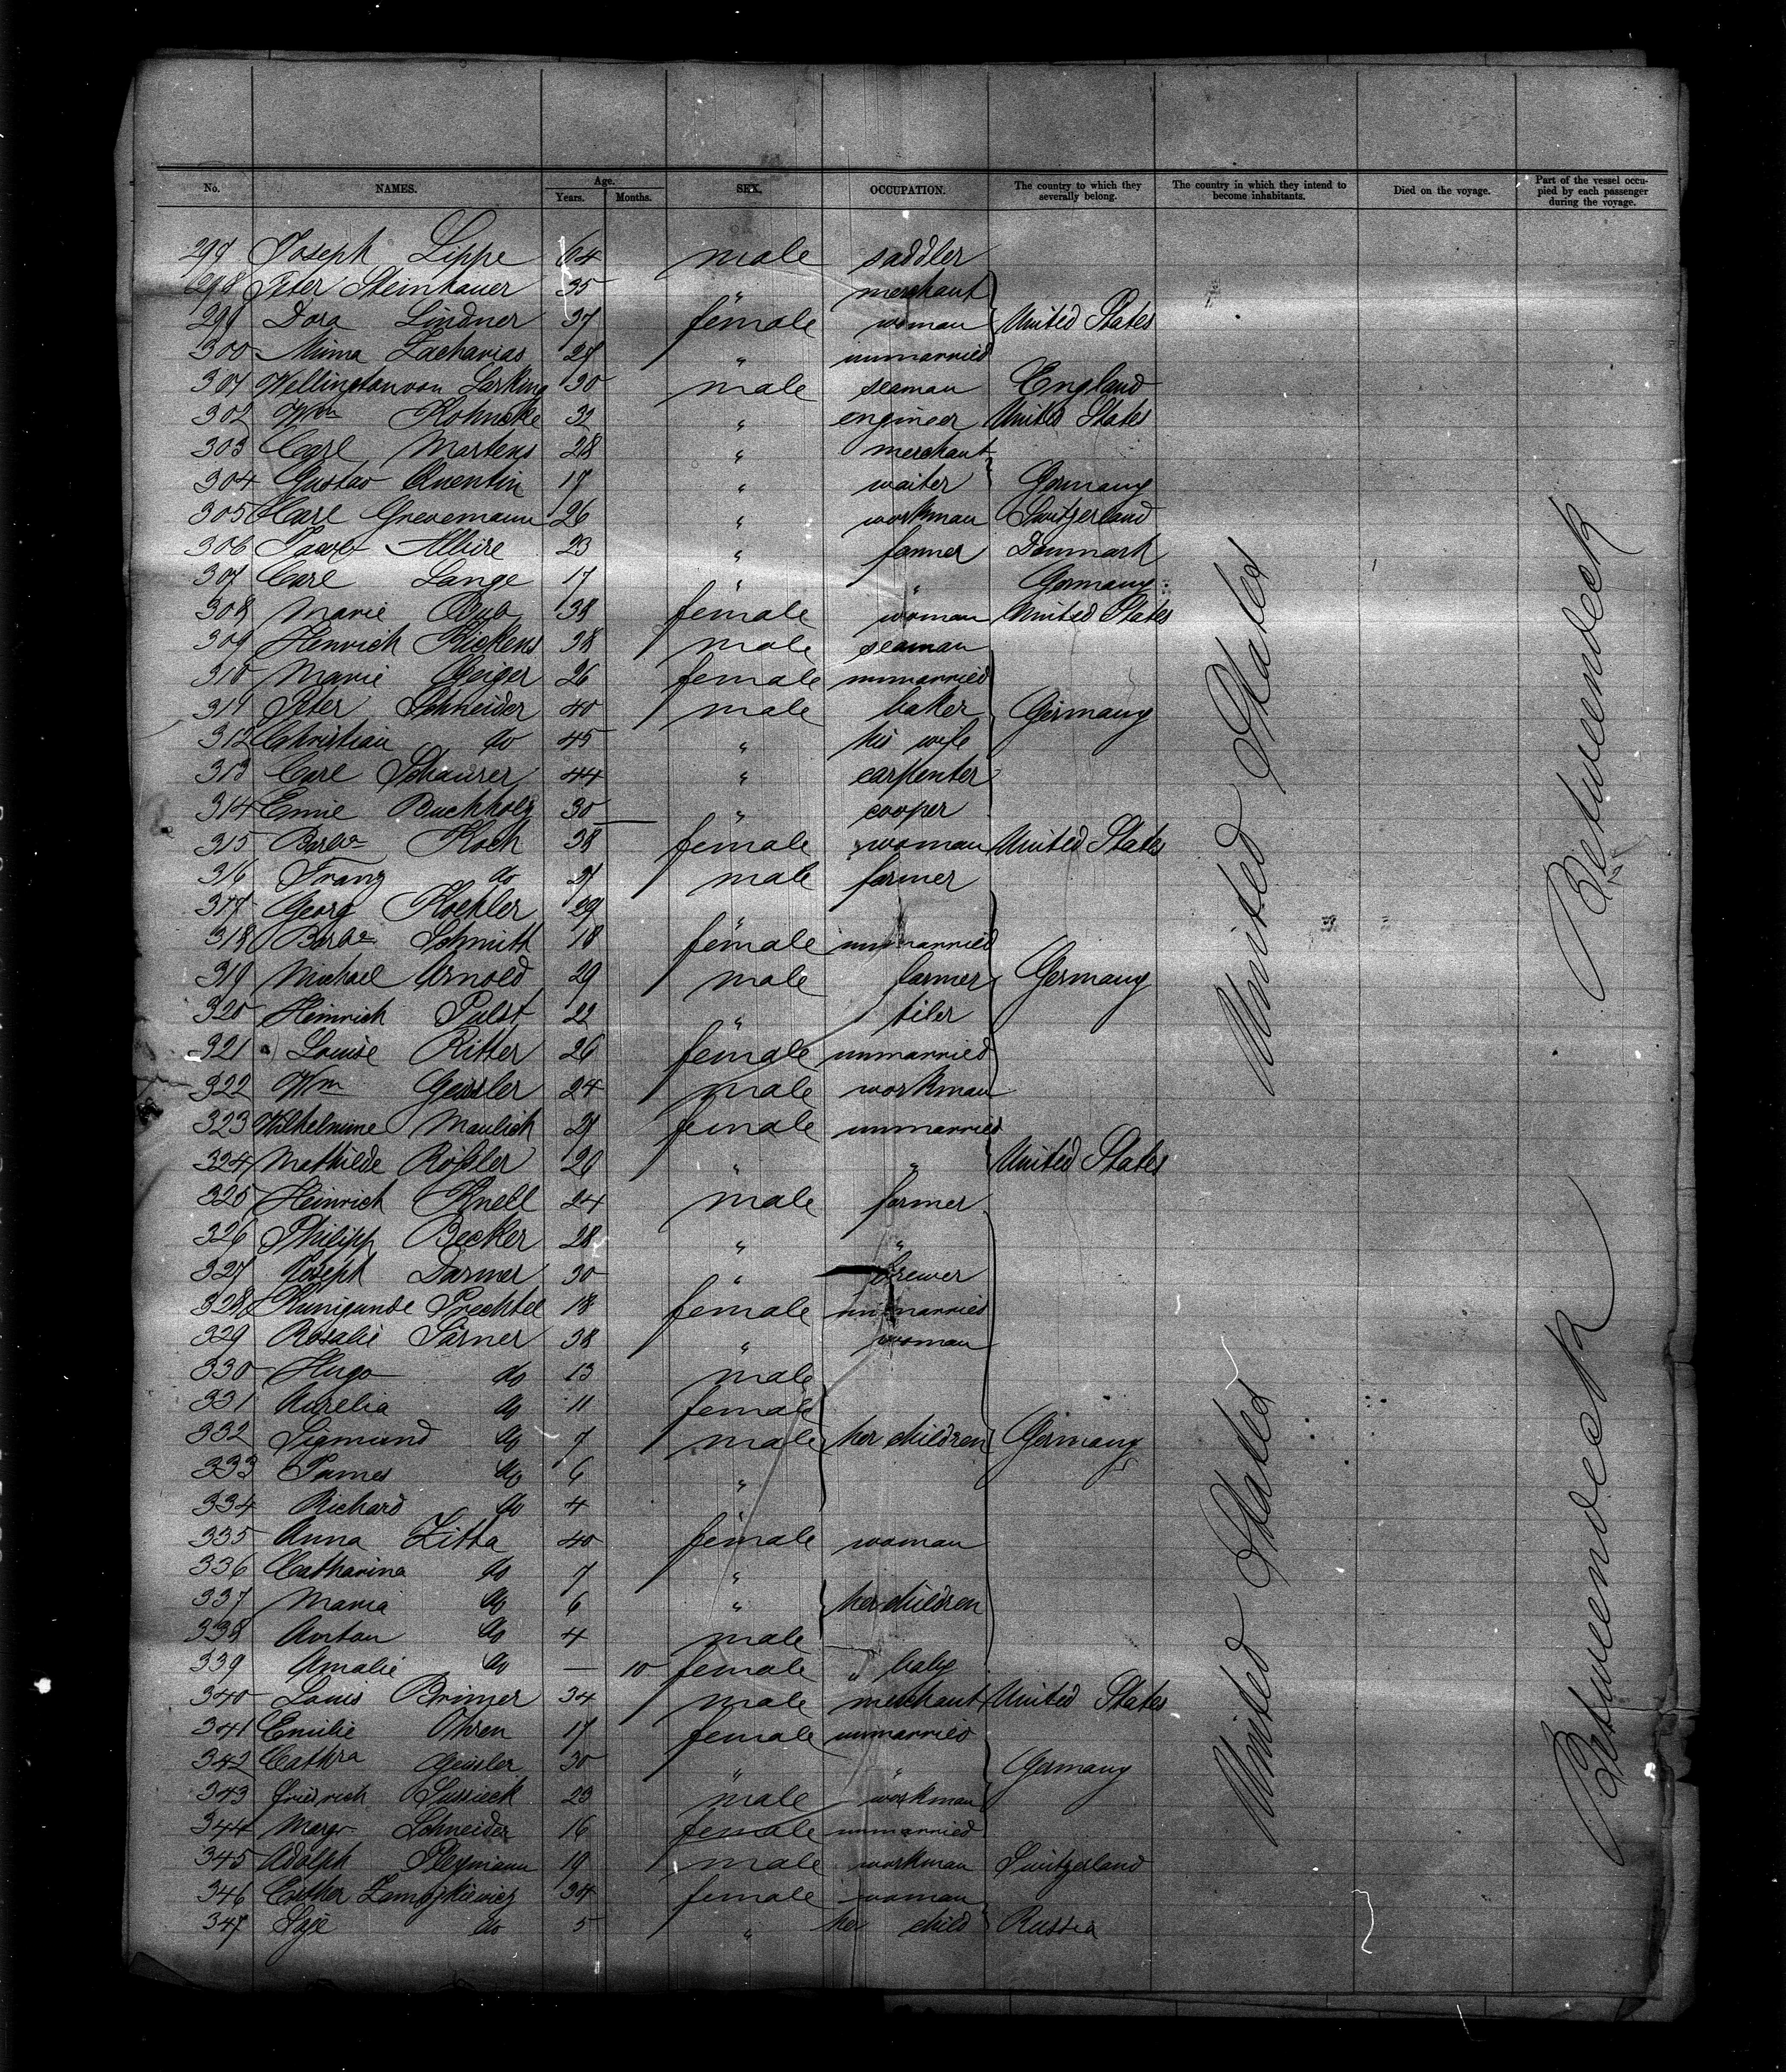 No. NAMES. Age. Years. Months. SEX. OCCUPATION. The country to which they severally belong. The country in which they intend to become inhabitants. Died on the voyage. Part of the vessel occupied by each passenger during the voyage.
297 Joseph Lippe 64 male saddler
298 Peter Steinhauer 35 " merchant
299 Dora Lindner 37 female woman United States
300 Minna Zacharias 27 " unmarried
301 Wellington van Larking 30 male seaman England
302 Wm Kohncke 32 " engineer United States
303 Carl Martens 28 " merchant
304 Gustav Quentin 17 " waiter Germany
305 Carl Grevemann 26 " workman Switzerland
306 Jacob 23 " farmer Denmark
307 Carl Lange 17 " " Germany
308 Marie 38 female woman United States
309 Henrich Rickens 38 male seaman
310 Marie Geiger 26 female unmarried
311 Peter Schneider 40 male baker Germany
312 Christian do 45 " his wife
313 Carl Schaurer 44 " carpenter
314 Buchholz 30 " cooper
315 Barba Koch 38 female woman United States
316 Franz do male farmer
317 Georg Koehler 29 "
318 Barba Schmith 18 female unmarried
319 Michael Arnold 29 male farmer Germany
320 Heinrich Pulst 22 " tiler
321 Louise Ritter 26 female unmarried
322 Wm Geissler 24 male workman
323 Wilhelmine Maulick 21 female unmarried
324 Mathilde Roßler 20 " " United States
325 Heinrich Knell 24 male farmer
326 Philipp Becker 28 " "
327 Joseph Darmer 30 " brewer
328 Kunigunde Prechtel 18 female unmarried
329 Rosalie Särner 38 " woman
330 Hugo do 13 male
331 Aurelia do 11 female
332 Sigmund do 7 male her children Germany
333 James do 6 "
334 Richard do 4
335 Anna Zitta 40 female woman
336 Catharina do 7 "
337 Maria do 6 " her children
338 Anton do 4 male
339 Amalie do — 10 female " baby
340 Louis Brimer 34 male merchant United States
341 Emilie Ohren 17 female unmarried
342 Cathra Geissler 30 " " Germany
343 Friedrich Sussieck 23 male workman
344 Margr Schneider 16 female unmarried
345 Adolph Plexmann 19 male workman Switzerland
346 Esther Zamozkiewicz 34 female woman
347 do 5 " her child Russia
United States
United States
Betweendeck
Betweendeck